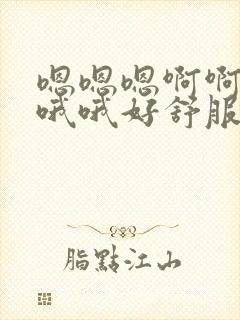 嗯嗯嗯啊啊
哦哦好舒服
脂點江山